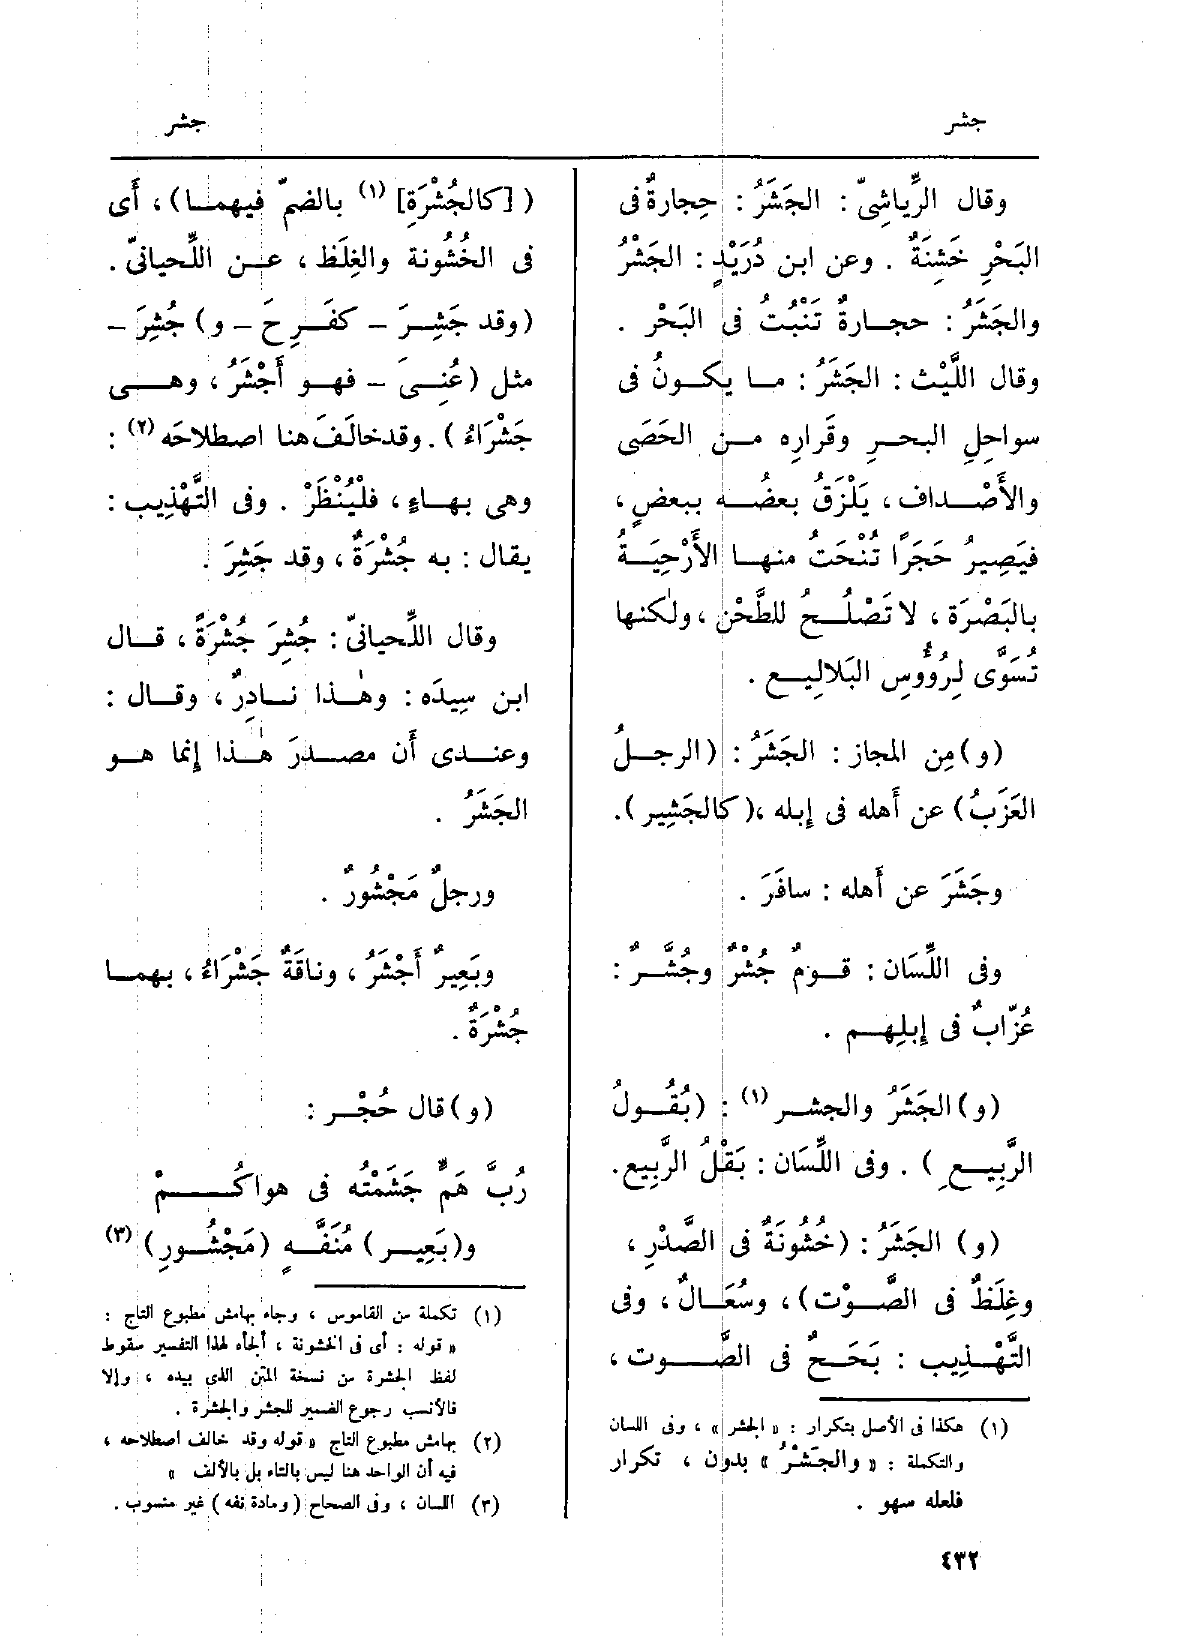 جشر
جشر
وقال الرِّياشِىّ : الجَشَرُ : حِجارةٌ فى
البَحْرِ خَشِنَةٌ . وعن ابن دُرَيْدٍ : الجَشْرُ
والجَشَرُ : حجــارةٌ تَنْبُتُ فى البَحْر .
وقال اللَّيْث : الجَشَرُ : مـا يكونُ فى
سواحِلِ البحـرِ وقَرارِه مـن الحَصَى
والأَصْــداف ، يَلْزَقُ بعضُــه ببعضٍ ،
فيَصِيرُ حَجَرًا تُنْحَتُ منهــا الأَرْحِيَــةُ
بالبَصْرَة ، لا تَصْلُــحُ للطَّحْن ، ولٰكنها
تُسَوَّى لِرُؤُوسِ البَلالِيــع .
(و) مِن المجاز : الجَشَرُ : (الرجــلُ
العَزَبُ) عن أَهله فى إِبله ، (كالجَشِير ) .
وجَشَرَ عن أَهله : سافَرَ .
وفى اللِّسَان : قــومٌ جُشْرٌ وجُشَّــرٌ :
عُزّابٌ فى إِبلِهــم .
(و) الجَشَرُ والجشــر (١) : (بُقُــولُ
الرَّبِيــعِ ) . وفى اللِّسَان : بَقْلُ الرَّبِيع .
(و) الجَشَرُ : (خُشُونَةٌ فى الصَّدْرِ ،
وغِلَظٌ فى الصَّــوْت) ، وسُعَــالٌ ، وفى
التَّهْــذِيب : بَحَــحٌ فى الصَّــــوت ،
(١) هكذا فى الأصل بتكرار : « الجشر » ، وفى اللسان
والتكملة : « والجَشْرُ » بدون ، تكرار
فلعله سهو .
( [كالجُشْرَةِ] (١) بالضمّ فيهمــا) ، أَى
فى الخُشُونة والغِلَظ ، عــن اللِّحيانىّ .
(وقد جَشِــرَ – كفَــرِحَ – و) جُشِرَ –
مثل (عُنِــىَ – فهــو أَجْشَرُ ، وهــى
جَشْرَاءُ ) . وقد خالَفَ هنا اصطلاحَه (٢) :
وهى بهــاءٍ ، فلْيُنْظَرْ . وفى التَّهْذِيب :
يقال : به جُشْرَةٌ ، وقد جَشِرَ .
وقال اللِّحيانىّ : جُشِرَ جُشْرَةً ، قــال
ابن سِيدَه : وهٰــذا نــادِرٌ ، وقــال :
وعنــدى أَن مصــدرَ هٰــذا إِنما هــو
الجَشَرُ .
ورجلٌ مَجْشُورٌ .
وبَعِيرٌ أَجْشَرُ ، وناقَةٌ جَشْرَاءُ ، بهمــا
جُشْرَةٌ .
(و) قال حُجْــر :
رُبَّ هَمٍّ جَشَمْتُه فى هواكُــــمْ
و(بَعِيــر) مُنَفَّــهٍ (مَجْشُــورِ) (٣)
(١) تكملة من القاموس ، وجاء بهامش مطبوع التاج :
« قوله : أى فى الخشونة ، ألجأه لهذا التفسير سقوط
لفظ الجشرة من نسخة المتن الذى بيده ، وإلا
فالأنسب رجوع الضمير للجشر والجشرة .
(٢) بهامش مطبوع التاج « قوله وقد خالف اصطلاحه ،
فيه أن الواحد هنا ليس بالتاء بل بالألف »
(٣) اللسان ، وفى الصحاح ( ومادة نفه ) غير منسوب .
٤٣٢